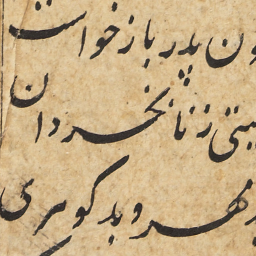 ون پدر باز خواست
بیتی ز نابخردان
مهر و بد گوهری